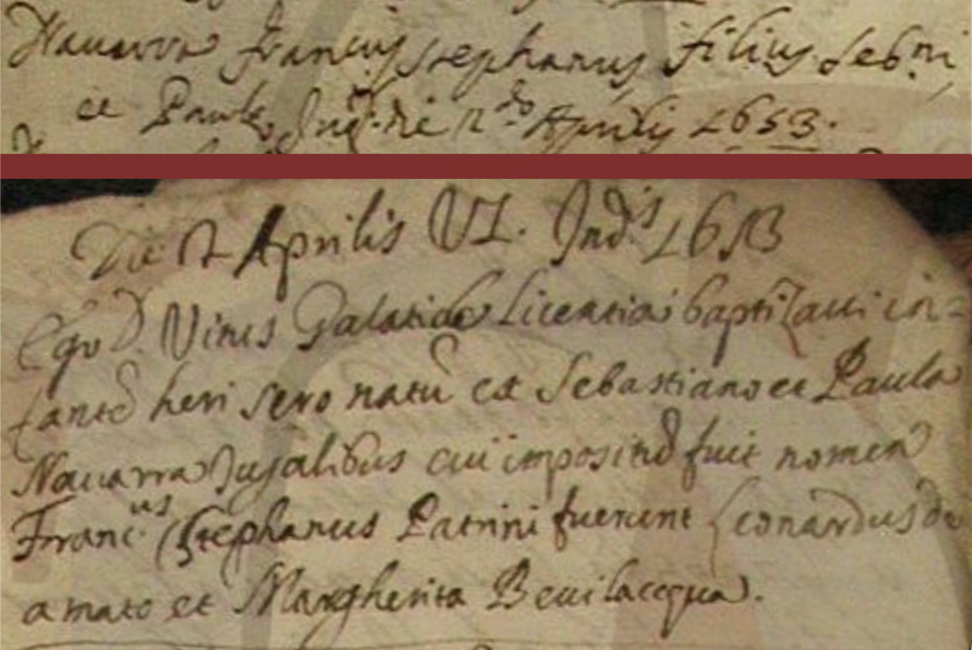 Nauarra Franc.us Stephanus filius Seb.ni
et Paulę Jug. die 2.do Aprilis 1653.
Die 2 Aprilis VI. Ind.is 1653
Ego D. Vitus licentia baptizaui in=
fantē heri sero natū ex Sebastiano et Paula
Nauarra Jugalibus cui impositū fuit nomen
Franc.us Stephanus Patrini fuerunt Leonardus de
amato et Margherita Beuilacqua.